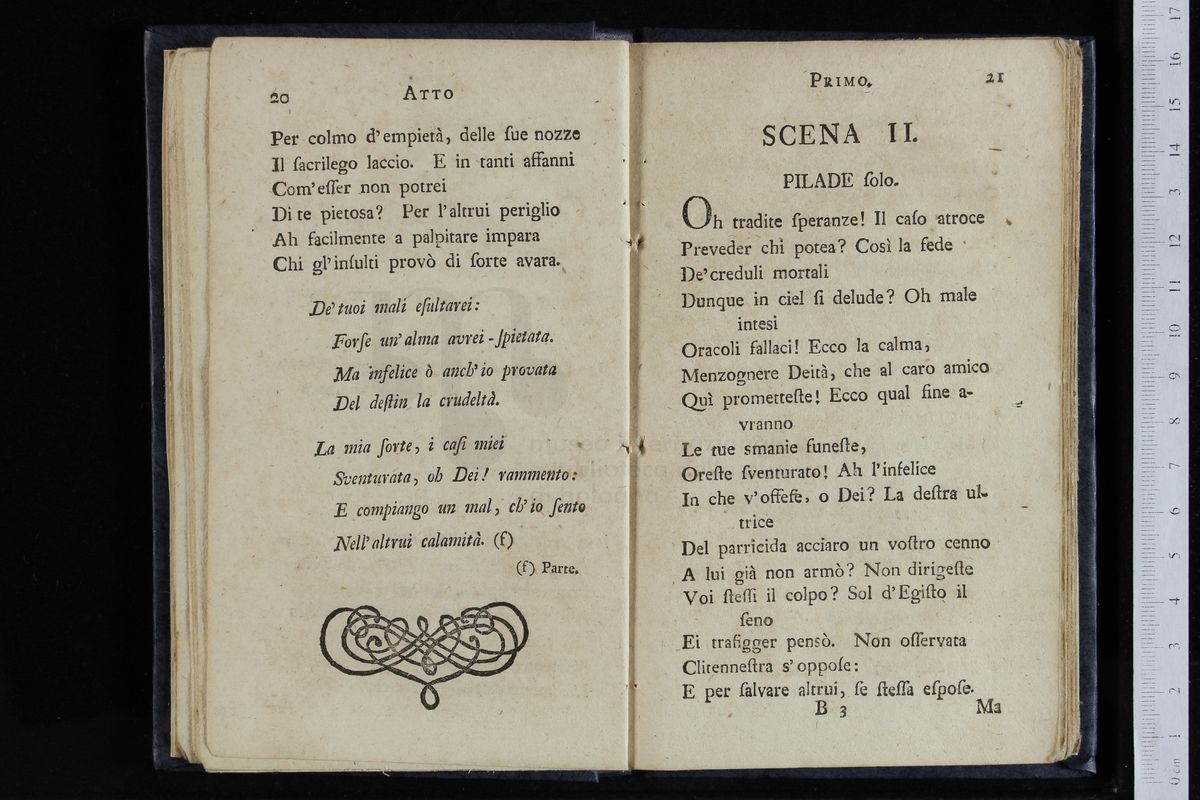 20 ATTO
Per colmo d'empietà, delle ſue nozze
Il ſacrilego laccio. E in tanti affanni
Com'eſſer non potrei
Di te pietosa? Per l'altrui periglio
Ah facilmente a palpitare impara
Chi gl'inſulti provò di ſorte avara.
De' tuoi mali eſultarei:
Forſe un' alma avrei ſpietata.
Ma infelice ò anch' io provata
Del deſtin la crudeltà.
La mia ſorte, i caſi miei
Sventurata, oh Dei! rammento:
E compiango un mal, ch' io ſento
Nell' altrui calamità. (f)
(f) Parte.
PRIMO. 21
SCENA II.
PILADE ſolo.
Oh tradite ſperanze! Il caſo atroce
Preveder chi potea? Così la fede
De' creduli mortali
Dunque in ciel ſi delude? Oh male
intesi
Oracoli fallaci! Ecco la calma,
Menzognere Deità, che al caro amico
Quì prometteſte! Ecco qual fine a-
vranno
Le tue smanie funeſte,
Oreſte ſventurato! Ah l'infelice
In che v'offeſe, o Dei? La deſtra ul-
trice
Del parricida acciaro un voſtro cenno
A lui già non armò? Non dirigeſte
Voi ſteſſi il colpo? Sol d'Egiſto il
ſeno
Ei trafigger pensò. Non oſſervata
Clitenneſtra s'oppoſe:
E per ſalvare altrui, ſe ſteſſa eſpoſe.
B 3 Ma
0 cm 1 2 3 4 5 6 7 8 9 10 11 12 13 14 15 16 17